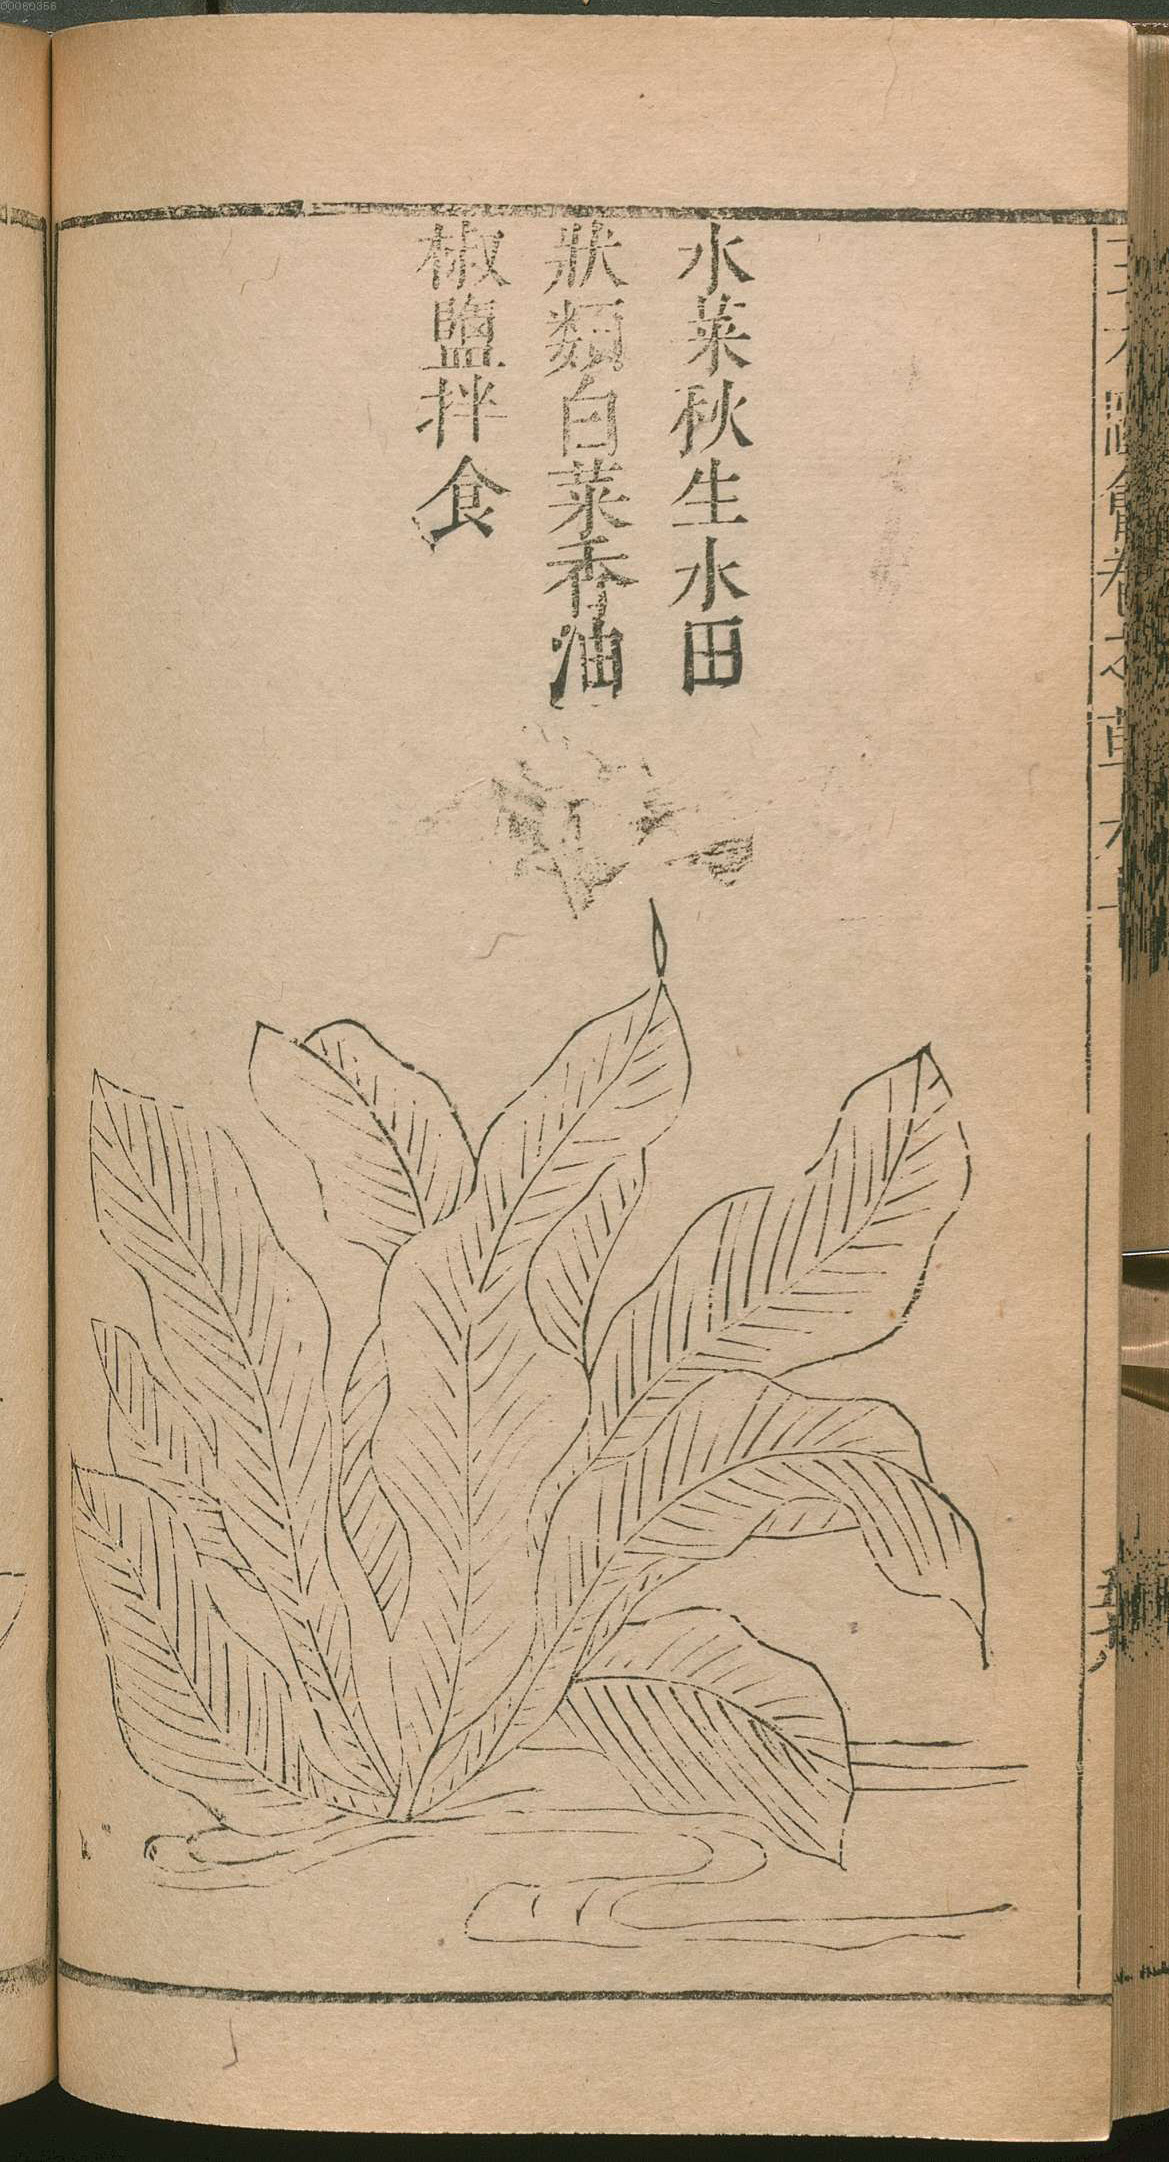 水菜秋生水田
狀類白菜香油
椒鹽拌食
00080356